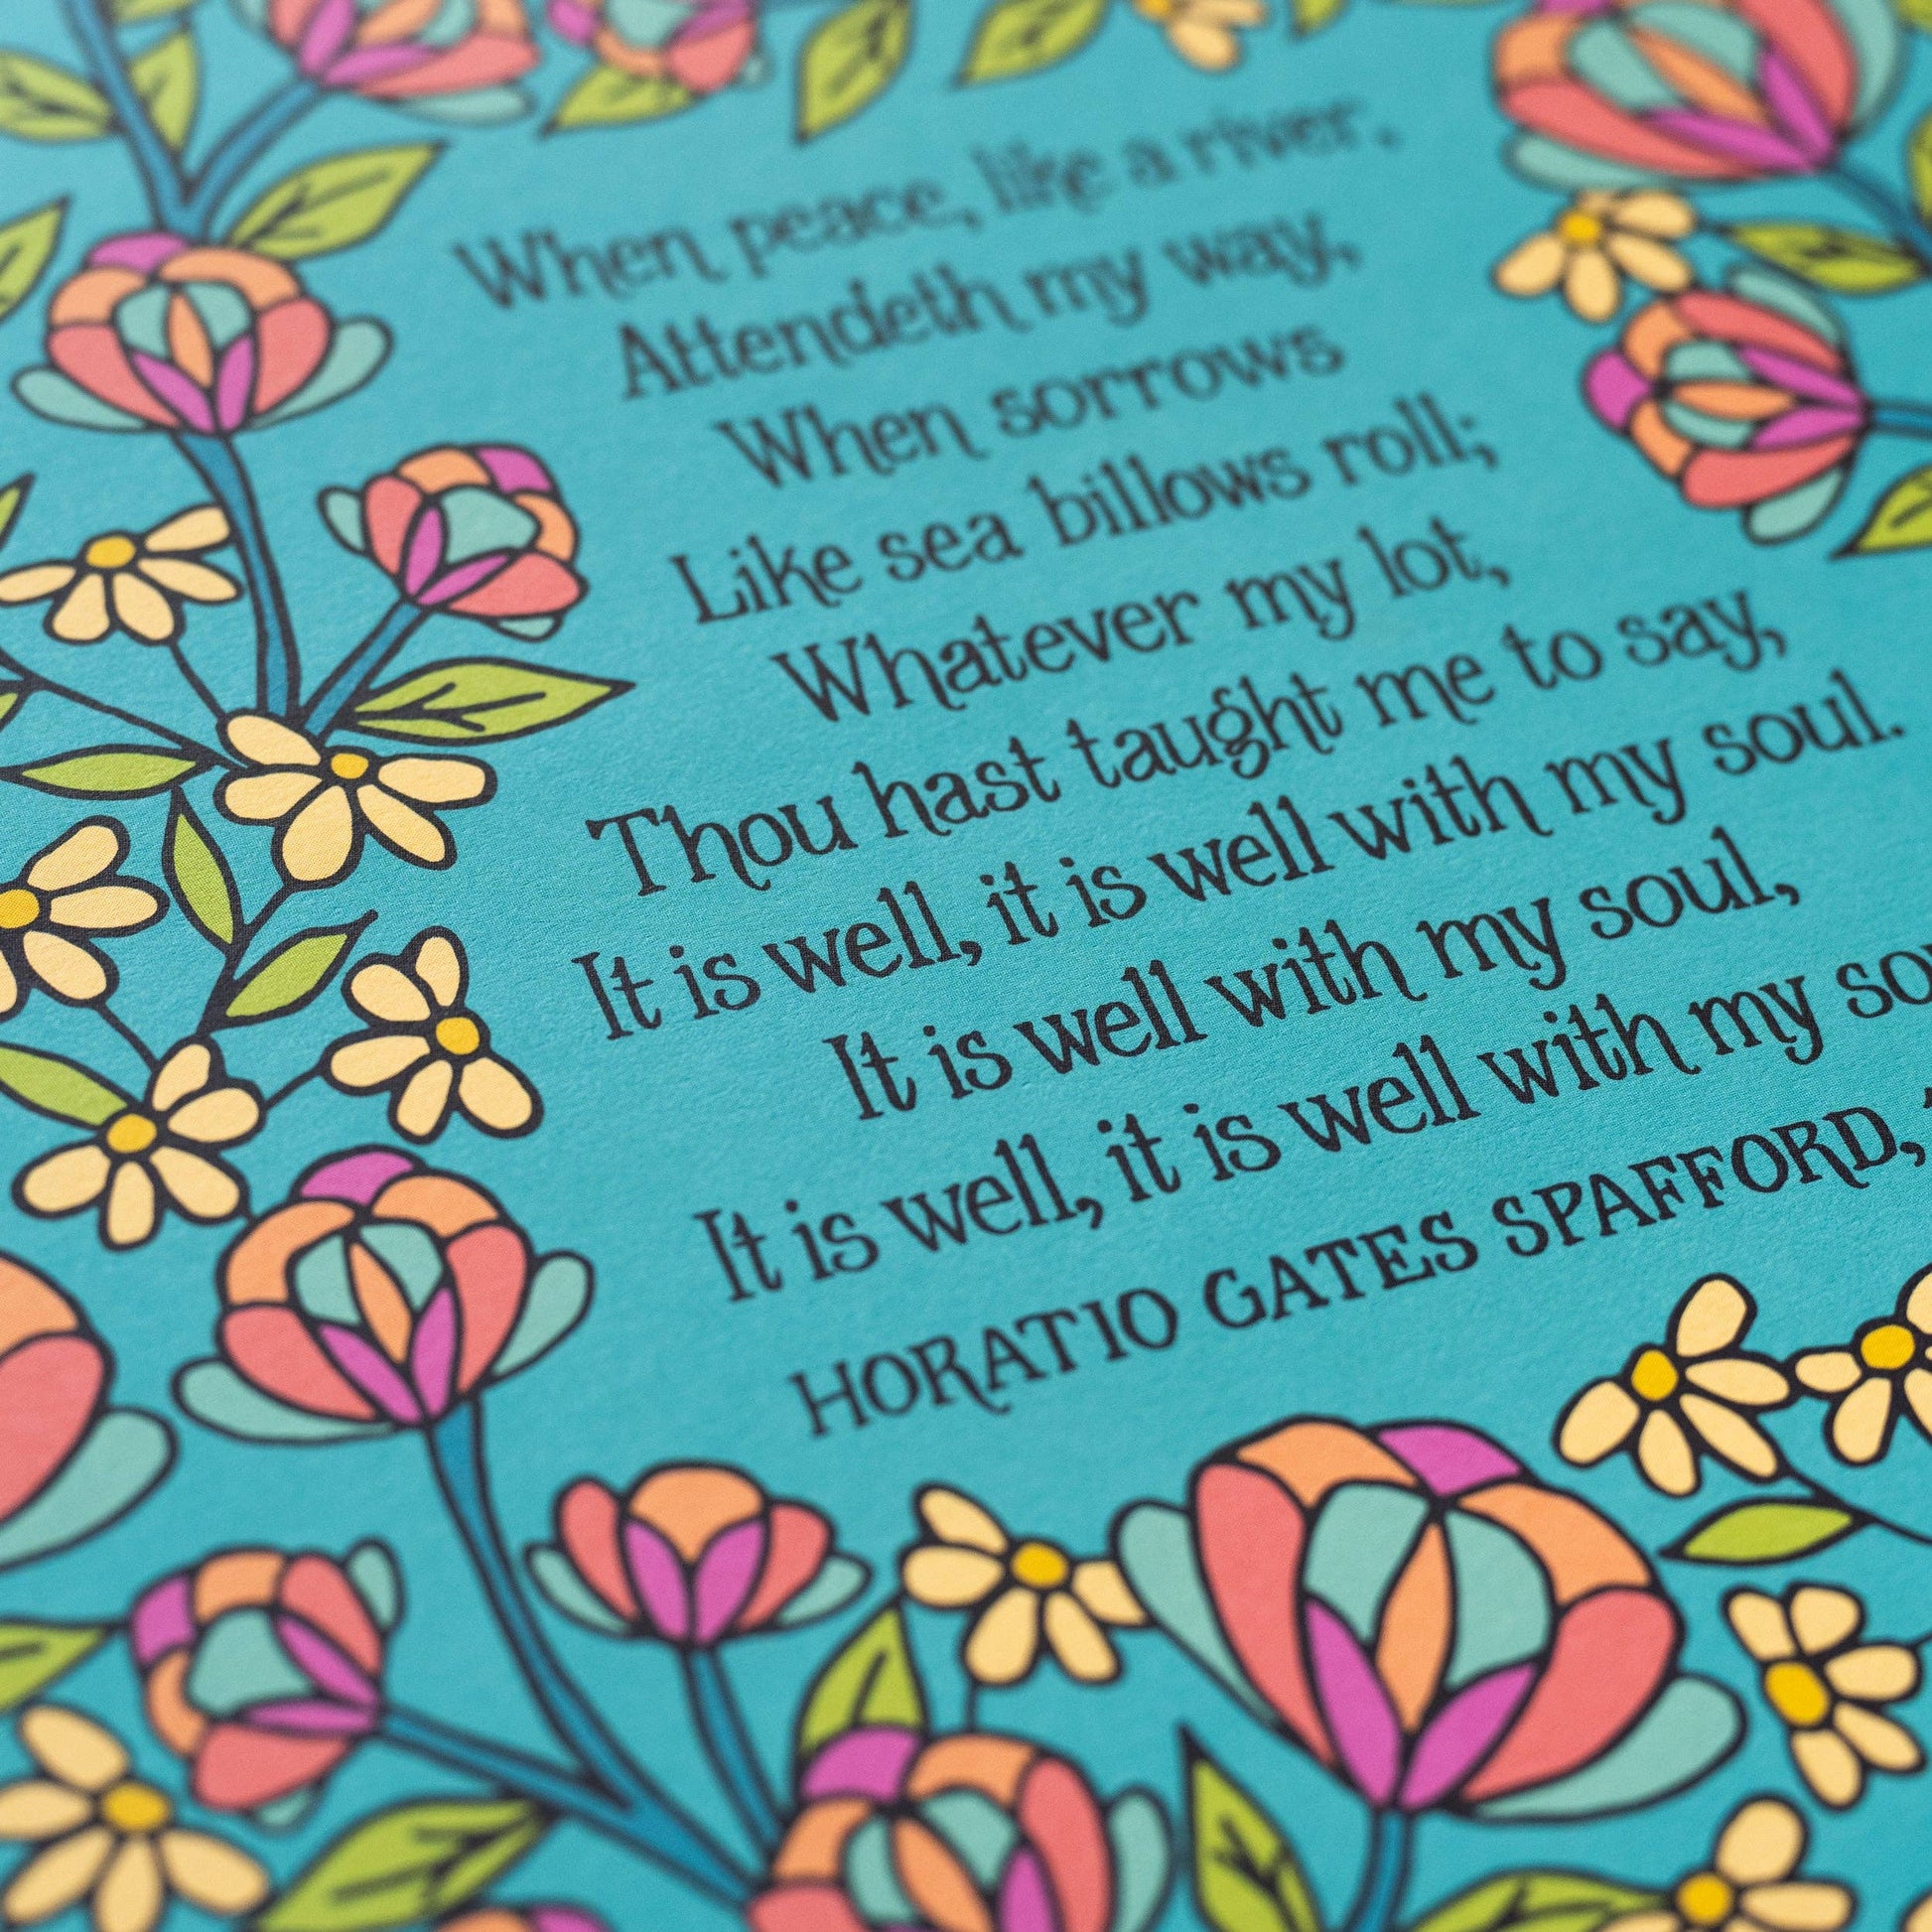 When peace, like a river,
Attendeth my way,
When sorrows
Like sea billows roll;
Whatever my lot,
Thou hast taught me to say,
It is well, it is well with my soul.
It is well with my soul,
It is well, it is well with my
HORATIO GATES SPAFFORD,